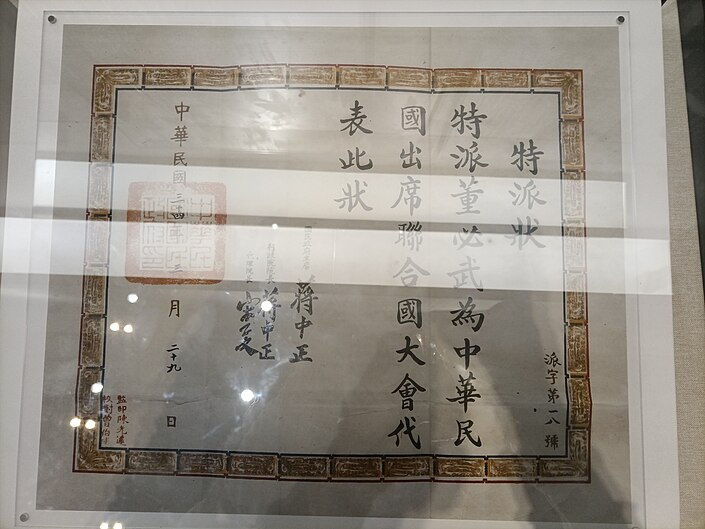 特派狀
派字第一八號
特派董必武為中華民
國出席聯合國大會代
表此狀
蔣中正
蔣中正
宋子文
中華民國三十四年三月二十九日
監印陳光遠